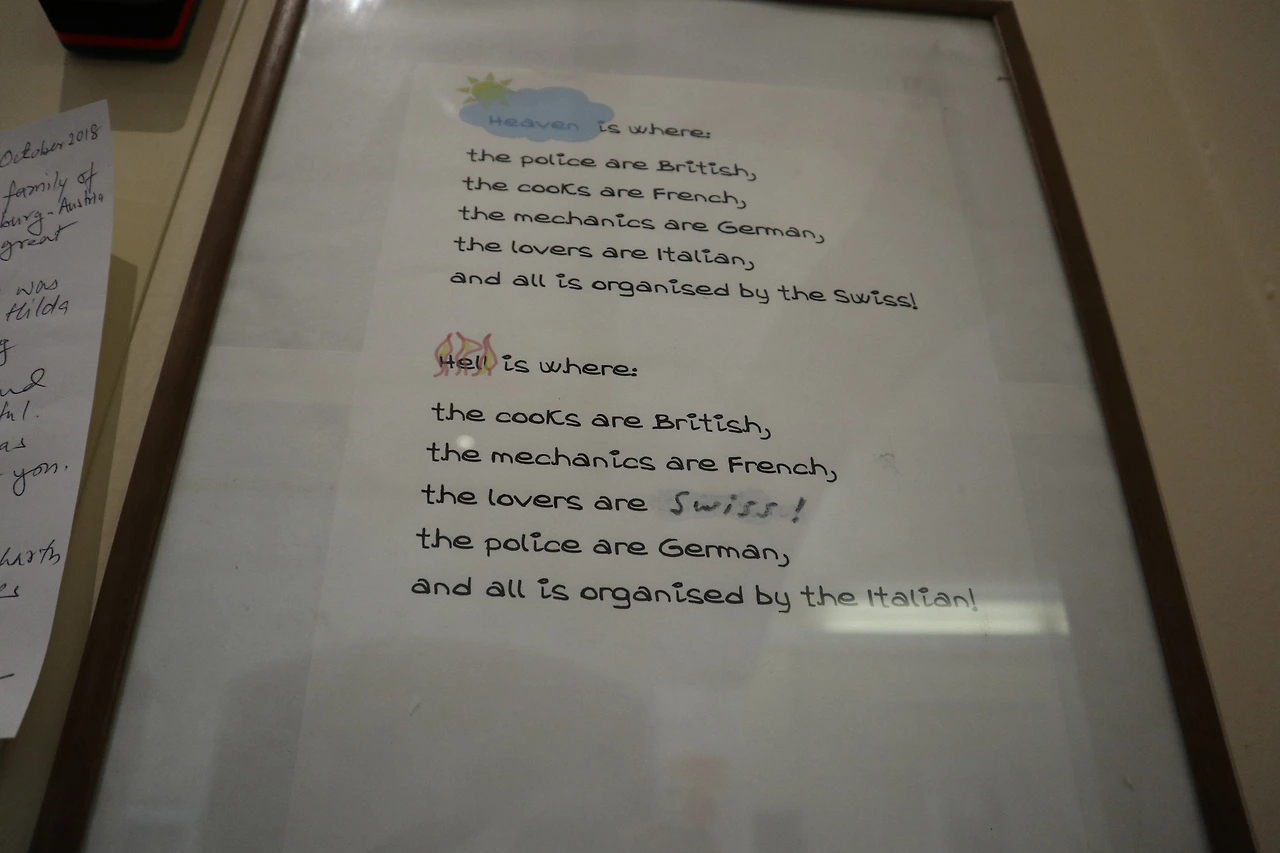 October 2018
family of
burg - Austria
great
was
Hilda
you.
Heaven is where:
the police are British,
the cooks are French,
the mechanics are German,
the lovers are Italian,
and all is organised by the Swiss!
Hell is where:
the cooks are British,
the mechanics are French,
the lovers are Swiss!
the police are German,
and all is organised by the Italian!